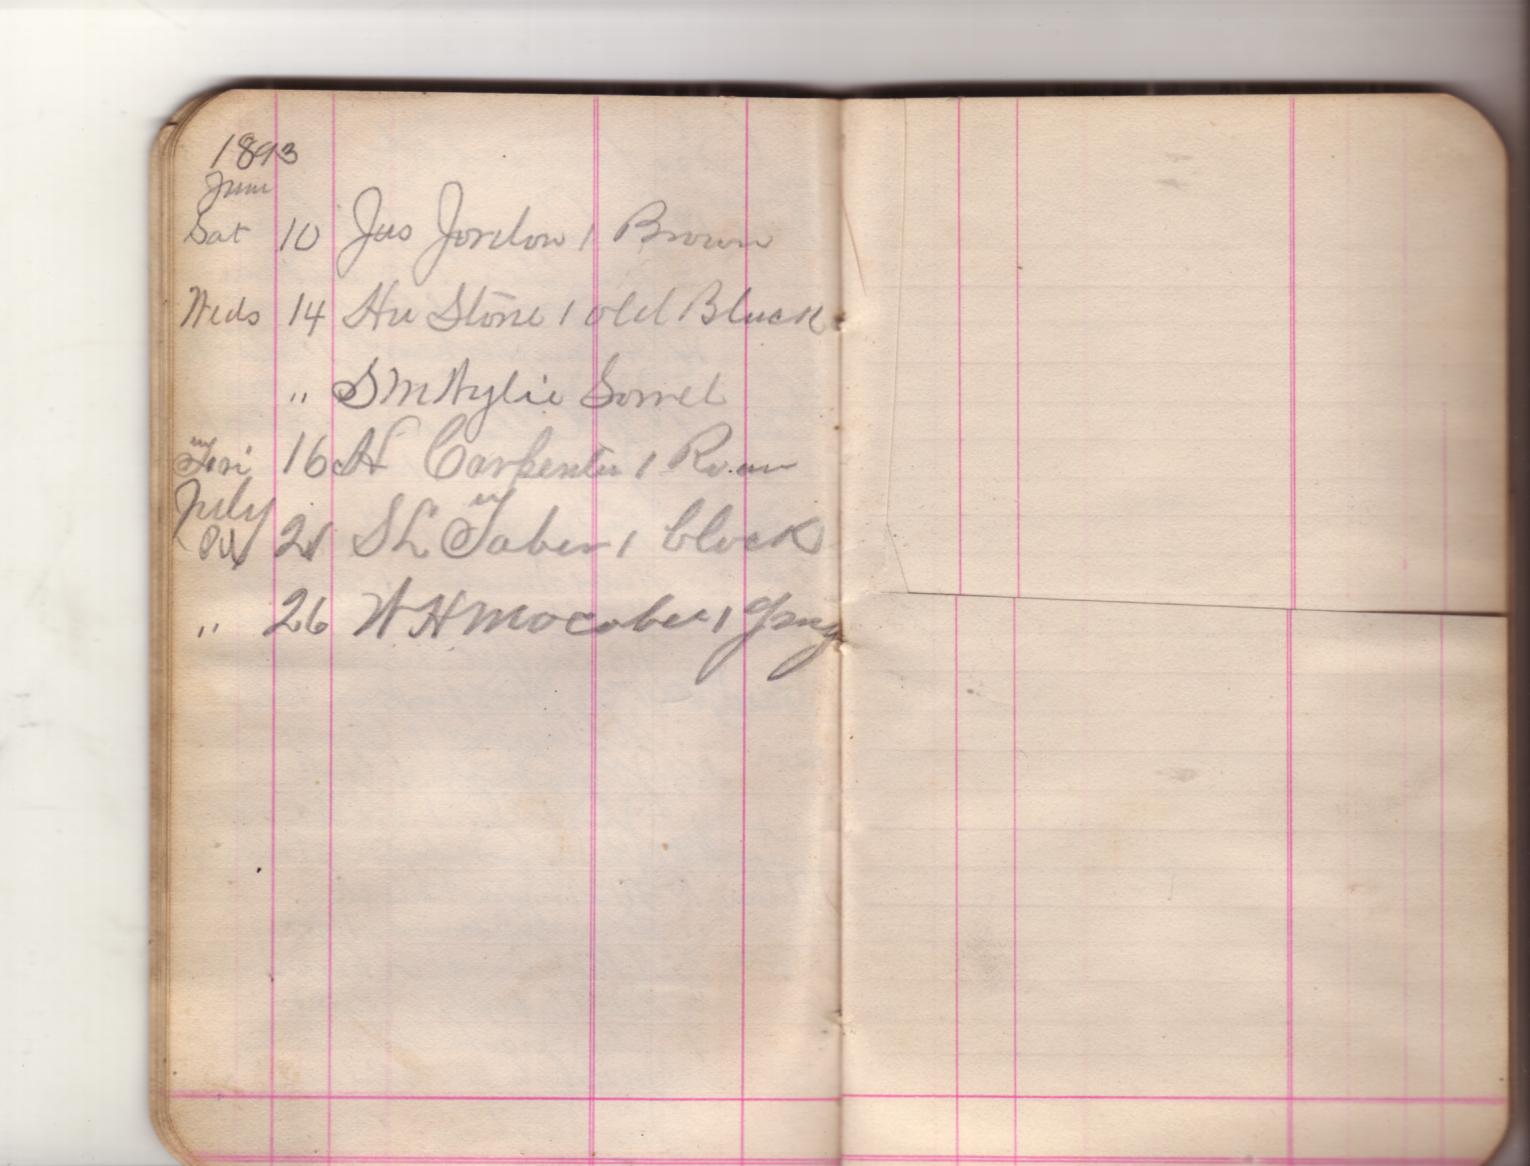 1893
June
Sat 10 Jas Jordon 1 Brown
Weds 14 Hu Stone 1 old Black
" S M Wylie Sorrel
Fri 16 H Carpenter 1 Roan
July
21 S L Taber 1 black
" 26 W H Mocaber 1 Gray